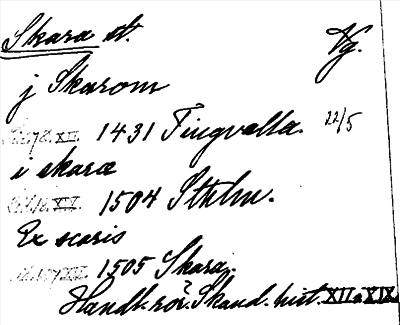 Skara st. Vg.
j Skarom
1431 Tingvalla. 22/5
i skara
1504 Sthlm.
Ex scaris
1505 Skara.
Handl. rör. Skand. hist. XII o XIX.